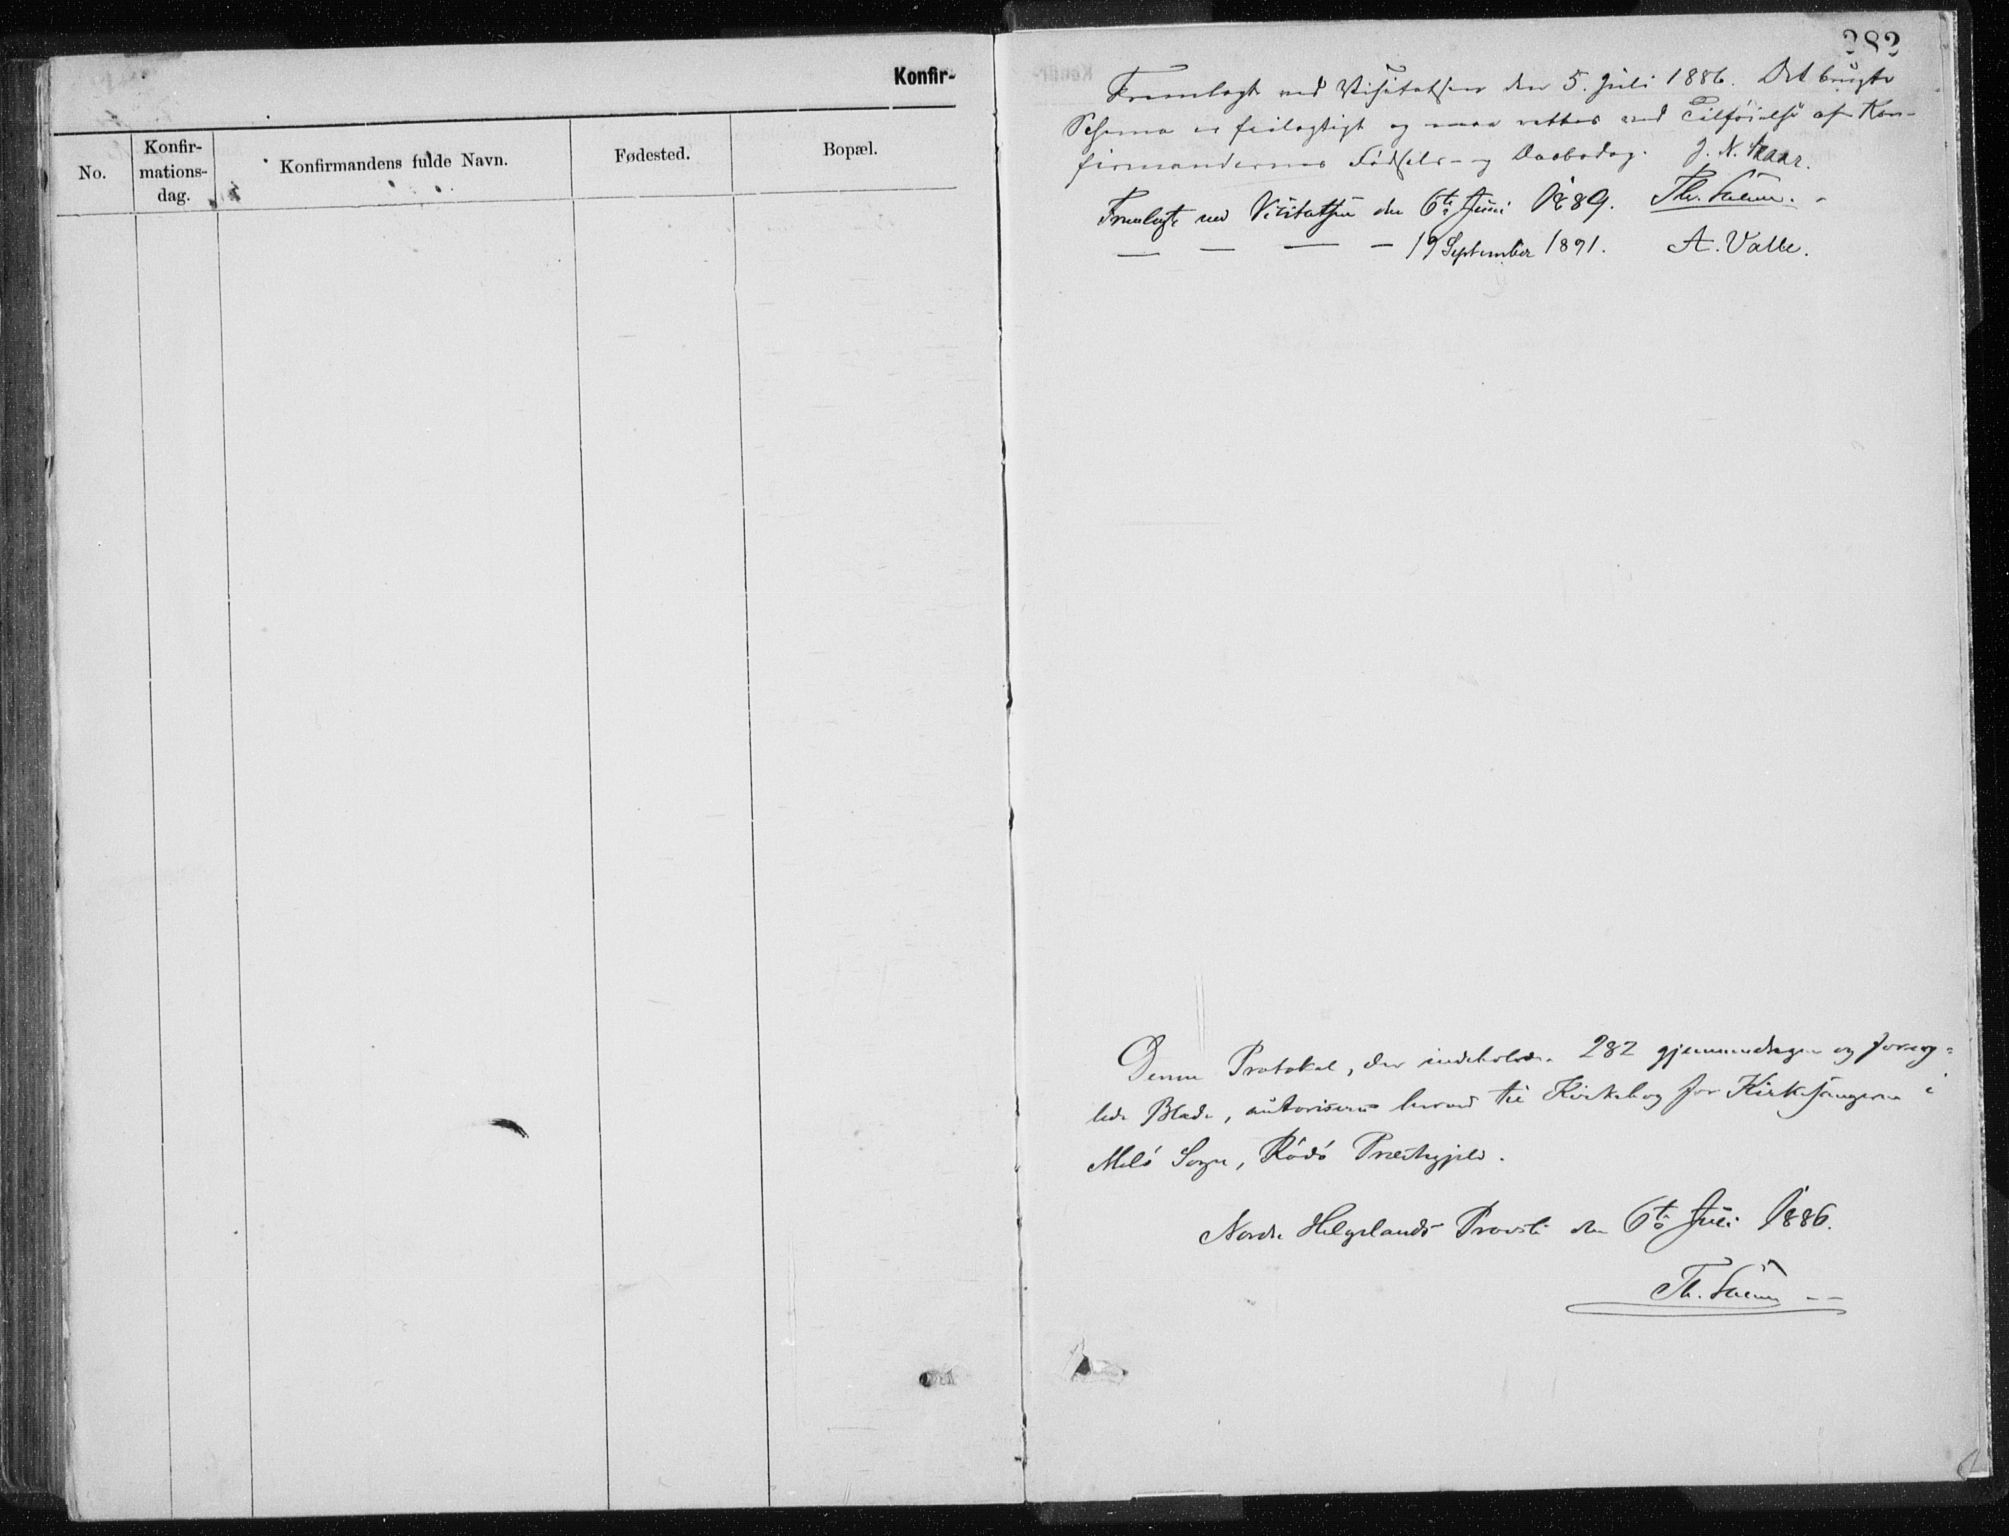 Konfir-
No.
Konfir-
mations-
dag.
Konfirmandens fulde Navn.
Fødested.
Bopæl.
282
Fremlagt ved Visitatsen den 5. Juli 1886. Det brugte
Schema er feilagtigt og maa rettes ved Tilføielse af Kon-
firmandernes Fødsels- og Daabsdag. J. N. Skaar.
Fremlagt ved Visitatsen den 6te Juni 1889. Th.
— — — — 19 September 1891. A. Valle.
Denne Protokol, der indeholder 282 gjennemdragne og forseg-
lede Blade, autoriseres herved til Kirkebog for Kirkesangeren i
Melø Sogn, Rødø Præstegjeld.
Nordre Helgelands Provsti den 6te Juli 1886.
Th.